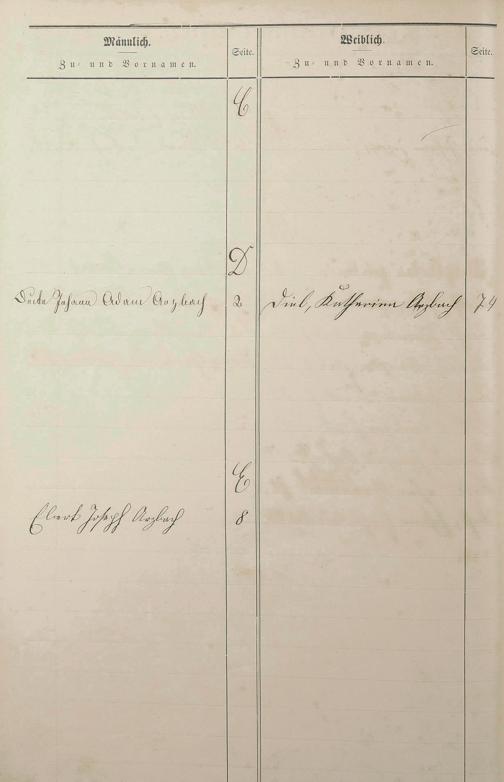 Männlich.
Zu- und Vornamen.
Seite.
Weiblich.
Zu- und Vornamen.
Seite.
C
D
Johann Adam Arzbach 2
Diel, Katharina Arzbach 74
E
Elbert Joseph Arzbach 8